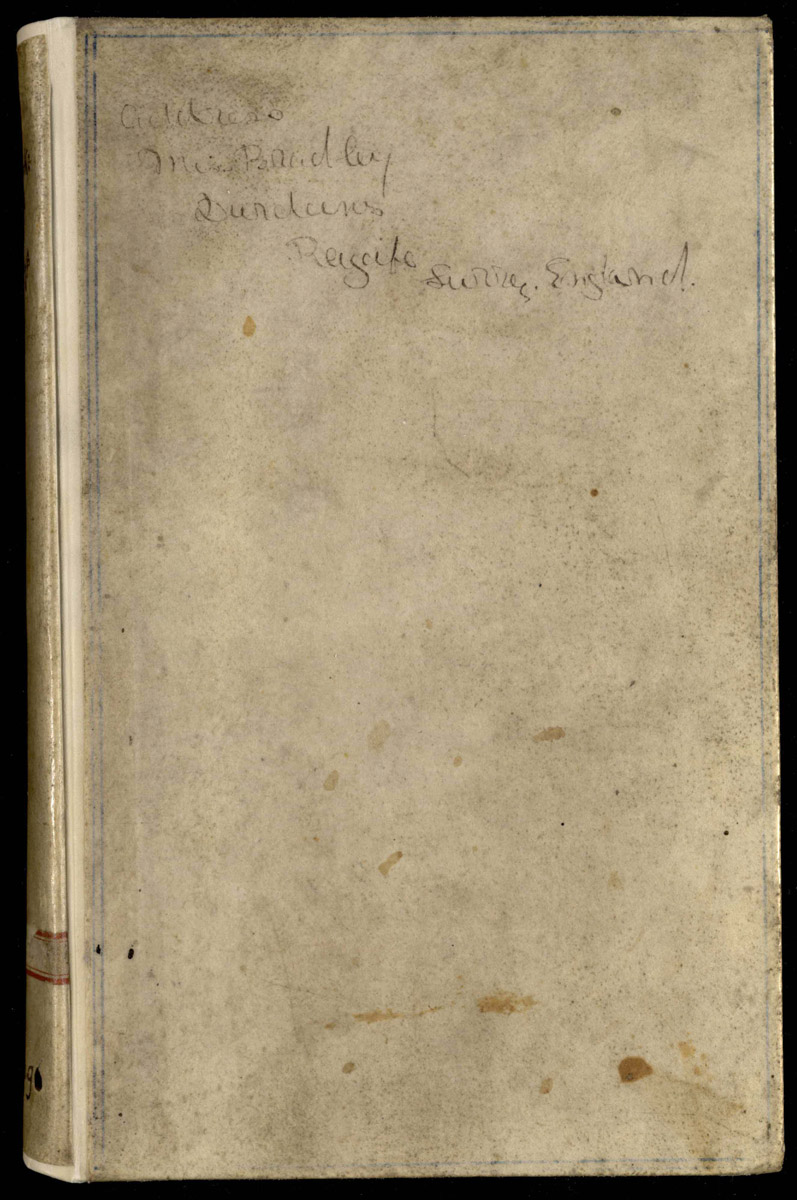 Address
Miss Bradley
Durdans
Reigate Surrey. England.